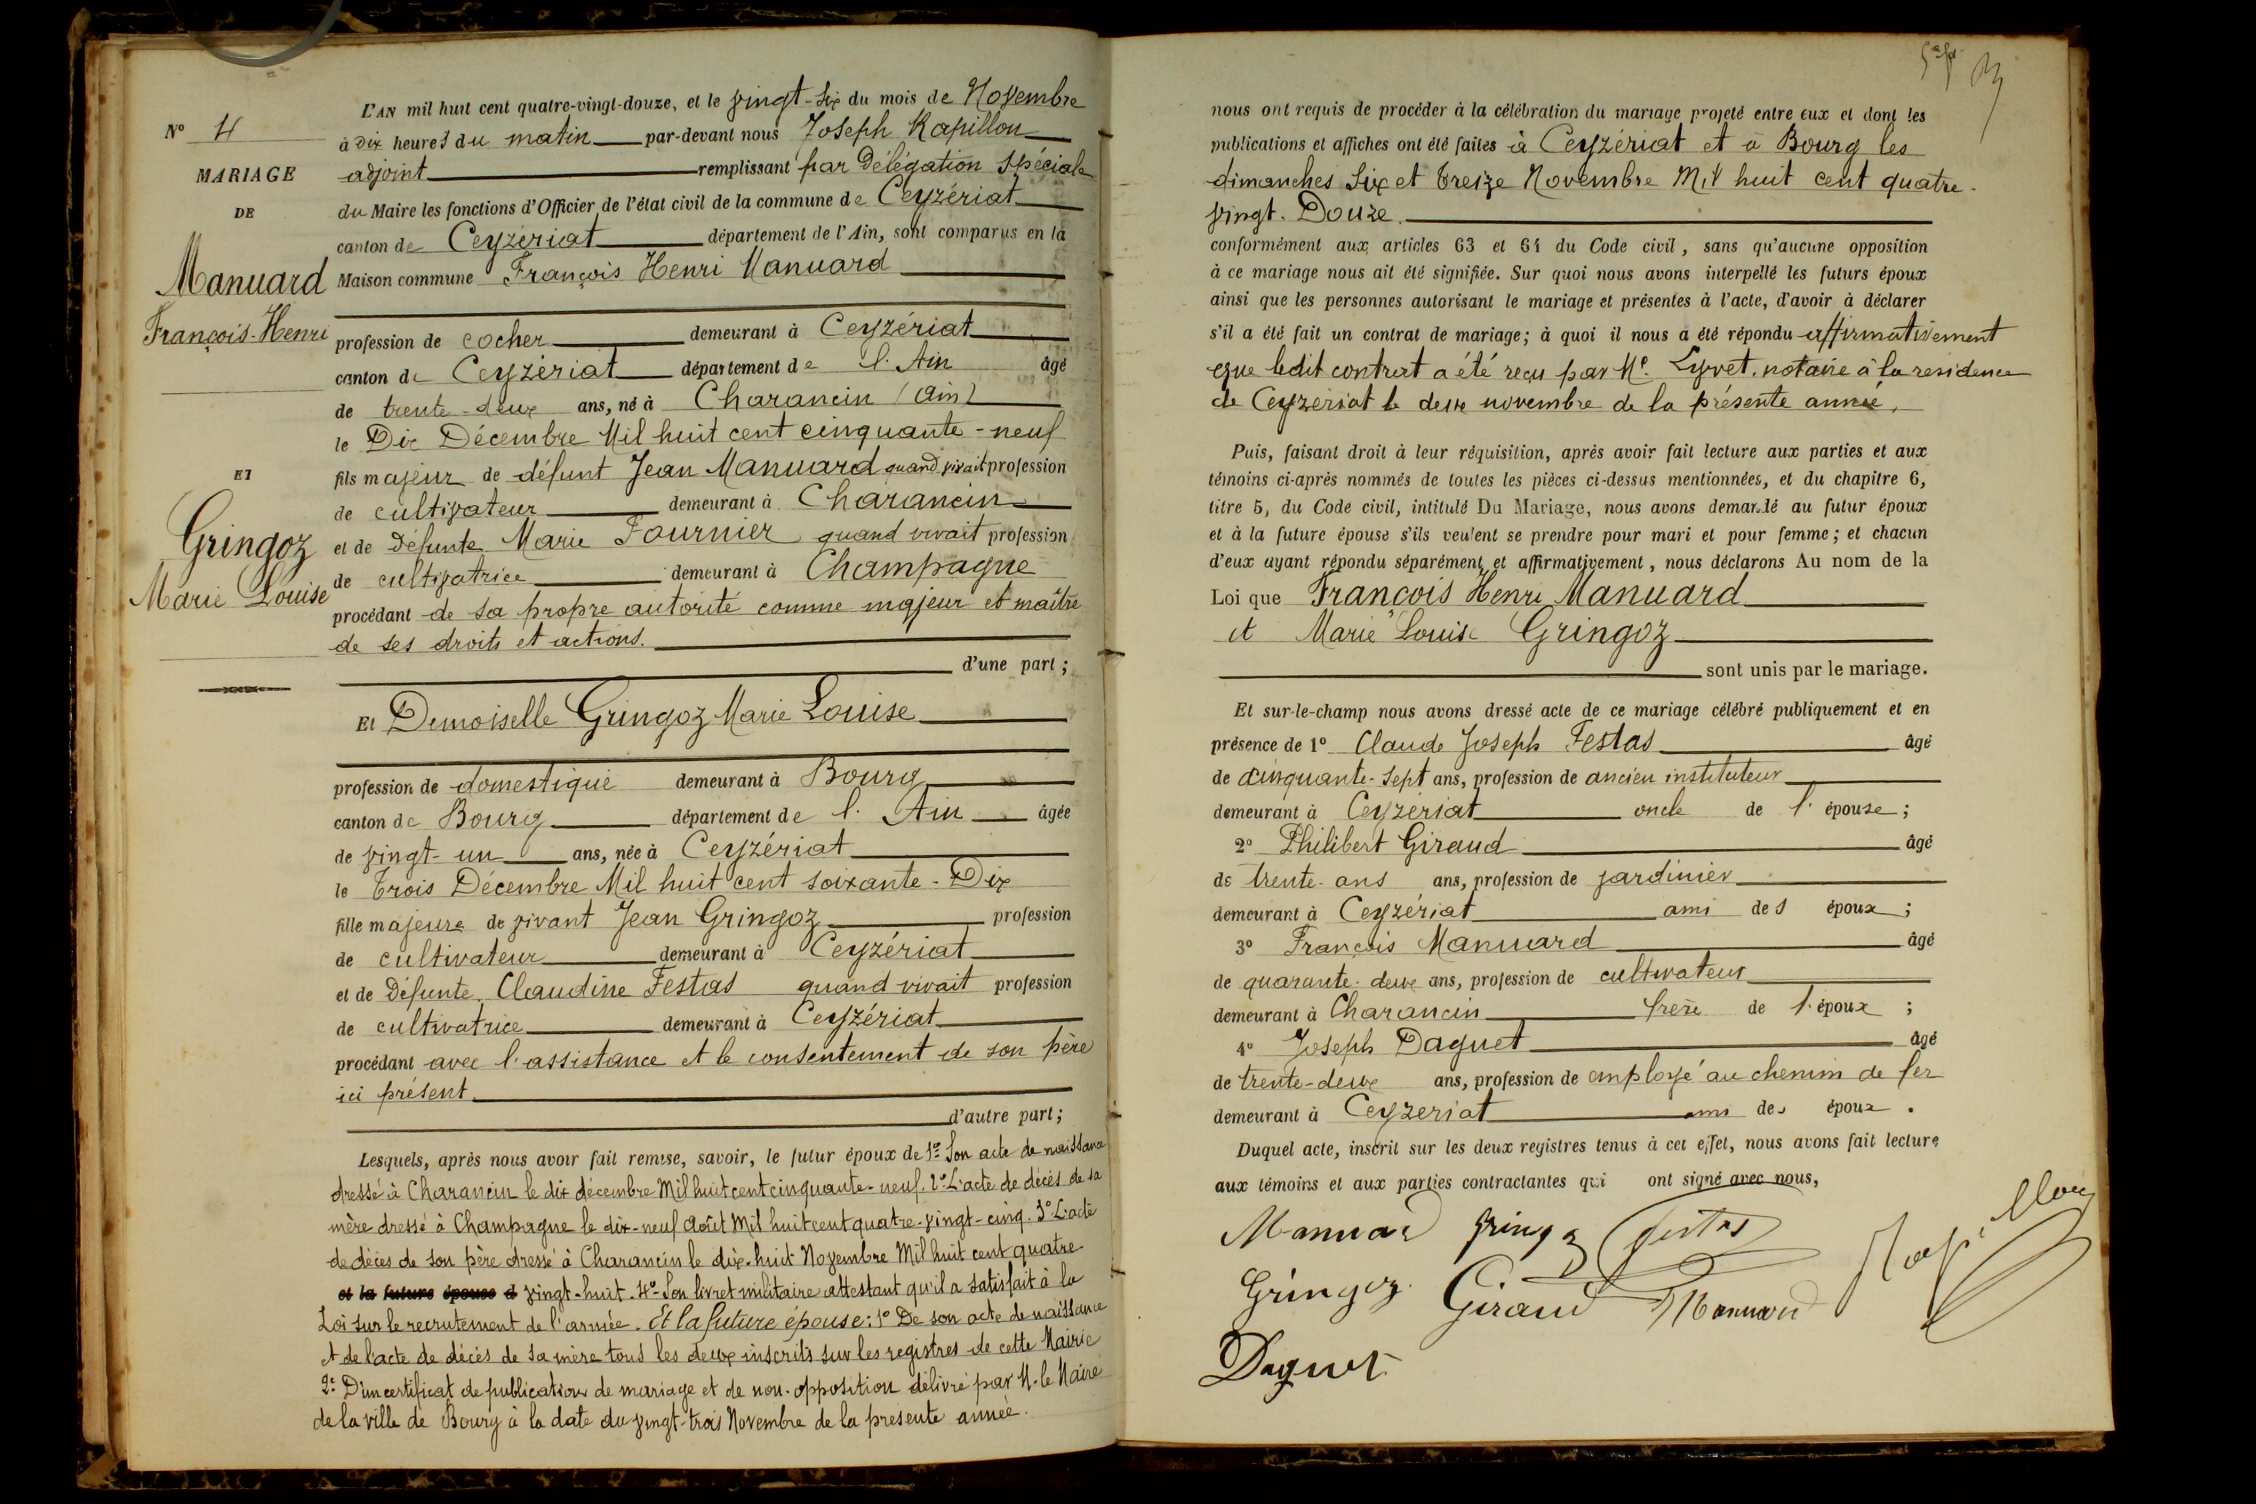 N° 4
MARIAGE
DE
Manuard
François-Henri
ET
Gringoz
Marie Louise
L'AN mil huit cent quatre-vingt-douze, et le vingt-six du mois de Novembre
à dix heures du matin par-devant nous Joseph Rapillon
adjoint remplissant par Délégation spéciale
du Maire les fonctions d'Officier de l'état civil de la commune de Ceyzériat
canton de Ceyzériat département de l'Ain, sont comparus en la
Maison commune François Henri Manuard
profession de cocher demeurant à Ceyzériat
canton de Ceyzériat département de l'Ain âgé
de trente-deux ans, né à Charancin (Ain)
le Dix Décembre Mil huit cent cinquante-neuf
fils majeur de défunt Jean Manuard quand vivait profession
de cultivateur demeurant à Charancin
et de Défunte Marie Fournier quand vivait profession
de cultivatrice demeurant à Champagne
procédant de sa propre autorité comme majeur et maître
de ses droits et actions.
d'une part ;
Et Demoiselle Gringoz Marie Louise
profession de domestique demeurant à Bourg
canton de Bourg département de l'Ain âgée
de vingt-un ans, née à Ceyzériat
le Trois Décembre Mil huit cent soixante-Dix
fille majeure de vivant Jean Gringoz profession
de cultivateur demeurant à Ceyzériat
et de Défunte Claudine Festas quand vivait profession
de cultivatrice demeurant à Ceyzériat
procédant avec l'assistance et le consentement de son père
ici présent
d'autre part ;
Lesquels, après nous avoir fait remise, savoir, le futur époux de 1° Son acte de naissance
dressé à Charancin le dix décembre Mil huit cent cinquante-neuf. 2° L'acte de décès de sa
mère dressé à Champagne le dix-neuf Août Mil huit cent quatre-vingt-cinq. 3° L'acte
de décès de son père dressé à Charancin le dix-huit Novembre Mil huit cent quatre
et la future épouse d vingt-huit. 4° Son livret militaire attestant qu'il a satisfait à la
Loi sur le recrutement de l'armée. Et la future épouse : 1° De son acte de naissance
et de l'acte de décès de sa mère tous les deux inscrits sur les registres de cette Mairie
2° D'un certificat de publication de mariage et de non-opposition délivré par M. le Maire
de la ville de Bourg à la date du vingt-trois Novembre de la présente année.
nous ont requis de procéder à la célébration du mariage projeté entre eux et dont les
publications et affiches ont été faites à Ceyzériat et à Bourg les
dimanches six et treize Novembre Mil huit cent quatre-
vingt-Douze
conformément aux articles 63 et 64 du Code civil, sans qu'aucune opposition
à ce mariage nous ait été signifiée. Sur quoi nous avons interpellé les futurs époux
ainsi que les personnes autorisant le mariage et présentes à l'acte, d'avoir à déclarer
s'il a été fait un contrat de mariage ; à quoi il nous a été répondu affirmativement
que ledit contrat a été reçu par Me Lyvet, notaire à la résidence
de Ceyzeriat le deux novembre de la présente année,
Puis, faisant droit à leur réquisition, après avoir fait lecture aux parties et aux
témoins ci-après nommés de toutes les pièces ci-dessus mentionnées, et du chapitre 6,
titre 5, du Code civil, intitulé Du Mariage, nous avons demandé au futur époux
et à la future épouse s'ils veulent se prendre pour mari et pour femme ; et chacun
d'eux ayant répondu séparément et affirmativement, nous déclarons Au nom de la
Loi que François Henri Manuard
et Marie Louise Gringoz
sont unis par le mariage.
Et sur-le-champ nous avons dressé acte de ce mariage célébré publiquement et en
présence de 1° Claude Joseph Festas âgé
de cinquante-sept ans, profession de ancien instituteur
demeurant à Ceyzériat oncle de l'épouse ;
2° Philibert Giraud âgé
de trente-ans ans, profession de jardinier
demeurant à Ceyzériat ami des époux ;
3° François Manuard âgé
de quarante-deux ans, profession de cultivateur
demeurant à Charancin frère de l'époux ;
4° Joseph Daguet âgé
de trente-deux ans, profession de employé au chemin de fer
demeurant à Ceyzeriat ami des époux .
Duquel acte, inscrit sur les deux registres tenus à cet effet, nous avons fait lecture
aux témoins et aux parties contractantes qui ont signé avec nous,
Manuard Gringoz Festas Rapillon
Gringoz Giraud Manuard
Daguet